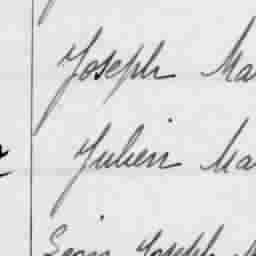 Joseph Ma
Julien Ma
Léon Joseph